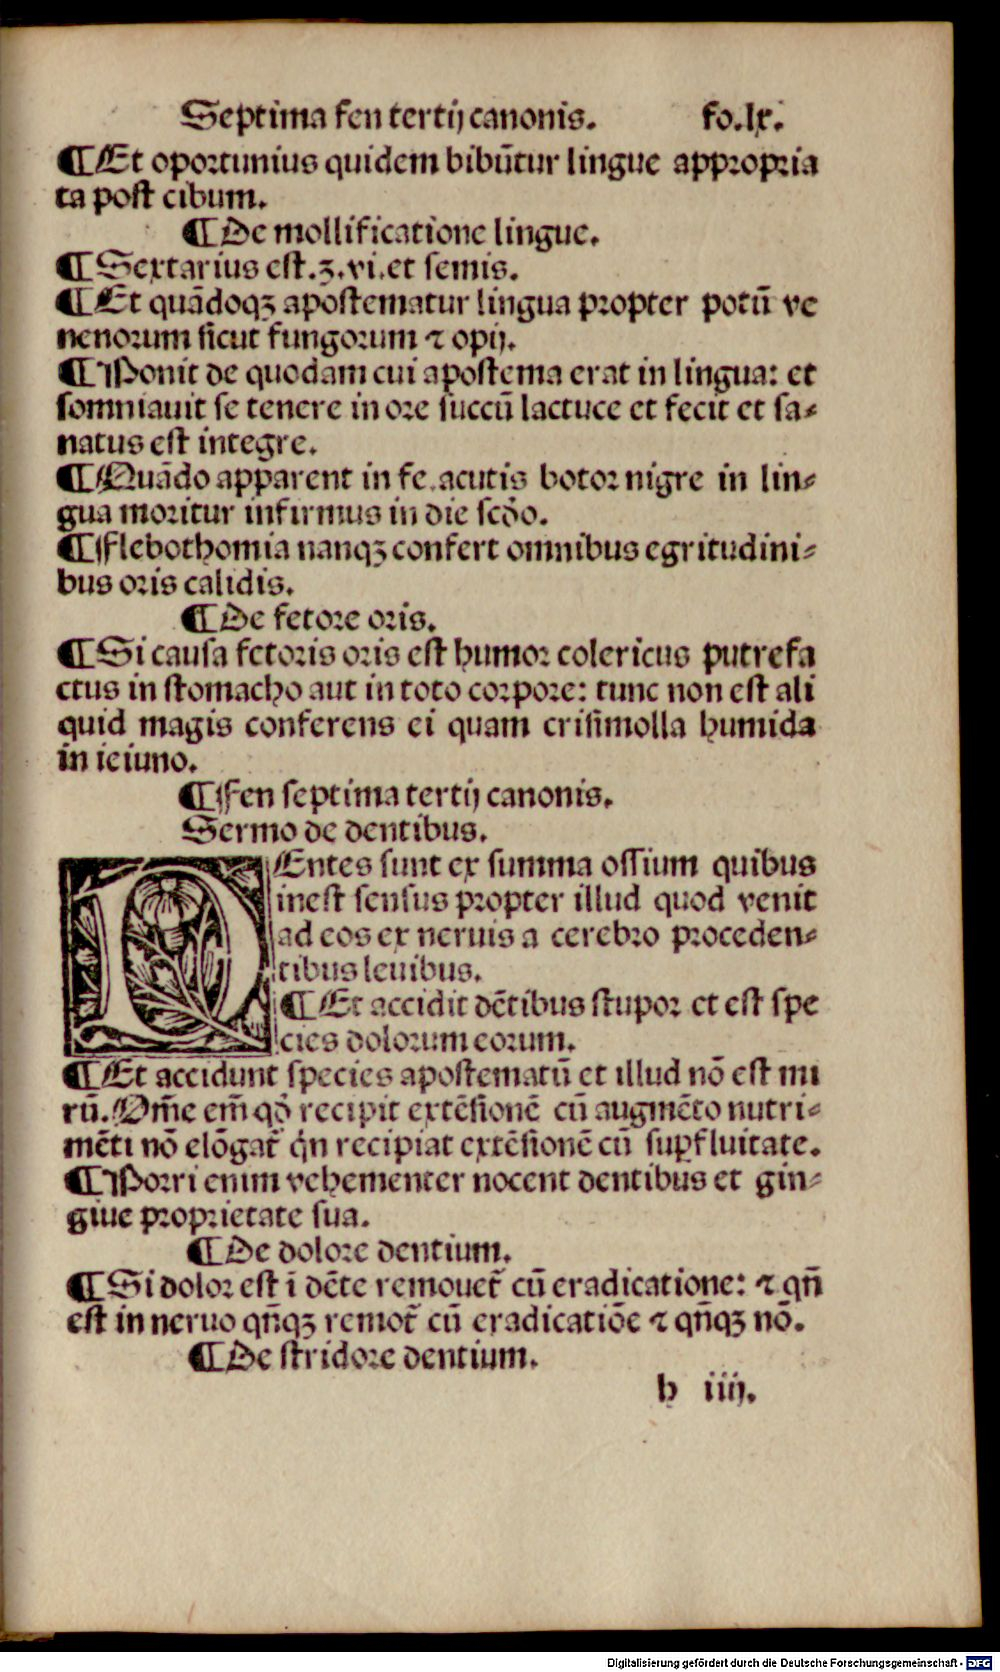 Septima fen tertij canonis. fo.lx.
¶Et oportunius quidem bibūtur lingue appropria
ta post cibum.
¶De mollificatione lingue.
¶Sextarius est.ʒ.vi.et semis.
¶Et quādoqꝫ apostematur lingua propter potū ve
nenorum sicut fungorum ⁊ opij.
¶Ponit de quodam cui apostema erat in lingua: et
somniauit se tenere in ore succū lactuce et fecit et sa⸗
natus est integre.
¶Quādo apparent in fe.acutis botor nigre in lin⸗
gua moritur infirmus in die scd̄o.
¶Flebothomia nanqꝫ confert omnibus egritudini⸗
bus oris calidis.
¶De fetore oris.
¶Si causa fetoris oris est humor colericus putrefa
ctus in stomacho aut in toto corpore: tunc non est ali
quid magis conferens ei quam crisimolla humida
in ieiuno.
¶Fen septima tertij canonis.
Sermo de dentibus.
DEntes sunt ex summa ossium quibus
inest sensus propter illud quod venit
ad eos ex neruis a cerebro proceden⸗
tibus leuibus.
¶Et accidit dētibus stupor et est spe
cies dolorum eorum.
¶Et accidunt species apostematū et illud nō est mi
rū.Om̄e em̄ qd̄ recipit extēsionē cū augmēto nutri⸗
mēti nō elōgat̄ qn̄ recipiat extēsionē cū suꝑfluitate.
¶Porri enim vehementer nocent dentibus et gin⸗
giue proprietate sua.
¶De dolore dentium.
¶Si dolor est i dēte remouet̄ cū eradicatione: ⁊ qn̄
est in neruo qn̄qꝫ remot̄ cū eradicatiōe ⁊ qn̄qꝫ nō.
¶De stridore dentium.
h iiij.
Digitalisierung gefördert durch die Deutsche Forschungsgemeinschaft - DFG